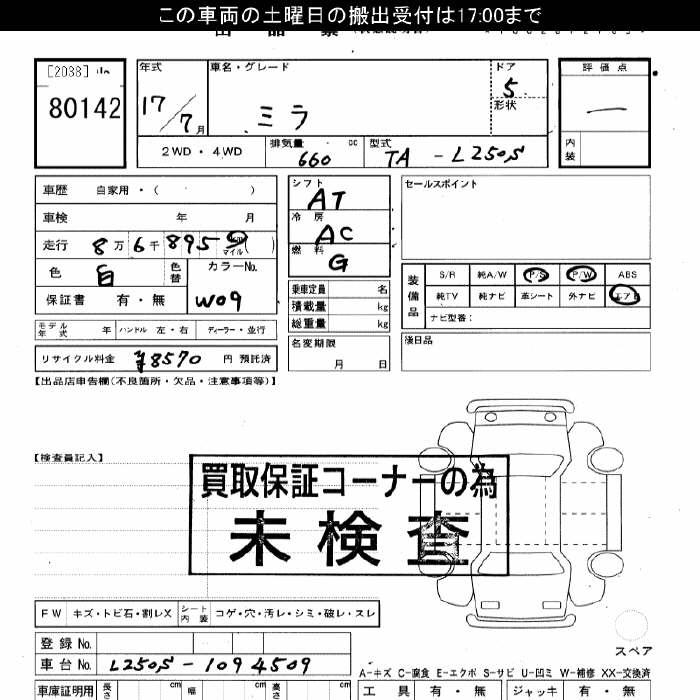 この車両の土曜日の搬出受付は17:00まで
[2038]
80142
年式
17/7月
車名・グレード
ミラ
ドア
5
形状
評価点
—
内装
2WD・4WD
排気量
660
cc
型式
TA - L250S
車歴 自家用・( )
車検 年 月
走行 8万6千895 km マイル ( )
色 白 色替 カラーNo. W09
保証書 有・無
モデル年式 年 ハンドル 左・右 ディーラー・並行
リサイクル料金 ¥8570 円 預託済
シフト
AT
冷房
AC
燃料
G
乗車定員 名
積載量 kg
総重量 kg
名変期限
月 日
セールスポイント
装備品
S/R 純A/W P/S P/W ABS
純TV 純ナビ 革シート 外ナビ エアB
ナビ型番:
後日品
【出品店申告欄(不良箇所・欠品・注意事項等)】
【検査員記入】
買取保証コーナーの為
未検査
FW キズ・トビ石・割レX シート内装 コゲ・穴・汚レ・シミ・破レ・スレ
登録No.
車台No. L250S-1094509
スペア
A-キズ C-腐食 E-エクボ S-サビ U-凹ミ W-補修 XX-交換済
車庫証明用 長さ cm 幅 cm 高さ cm
工具 有・無 ジャッキ 有・無